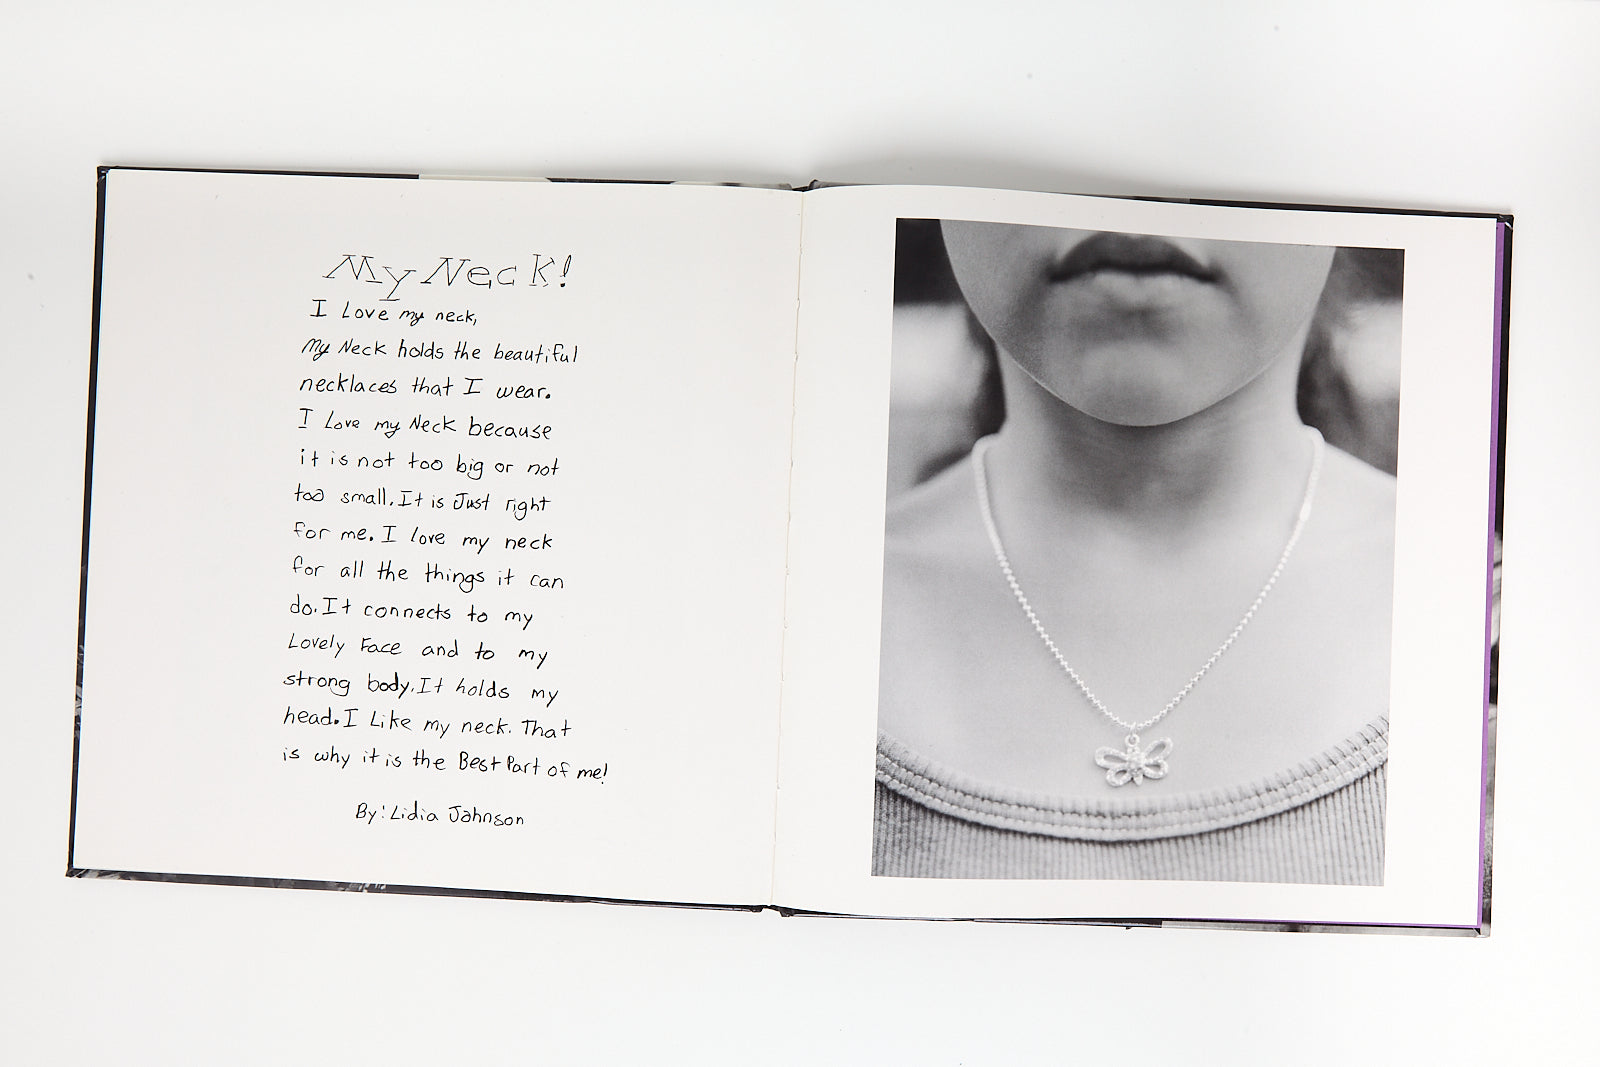 My Neck!
I Love my neck,
My Neck holds the beautiful
necklaces that I wear.
I Love my Neck because
it is not too big or not
too small. It is Just right
for me. I love my neck
for all the things it can
do. It connects to my
Lovely Face and to my
strong body. It holds my
head. I Like my neck. That
is why it is the Best Part of me!
By: Lidia Johnson